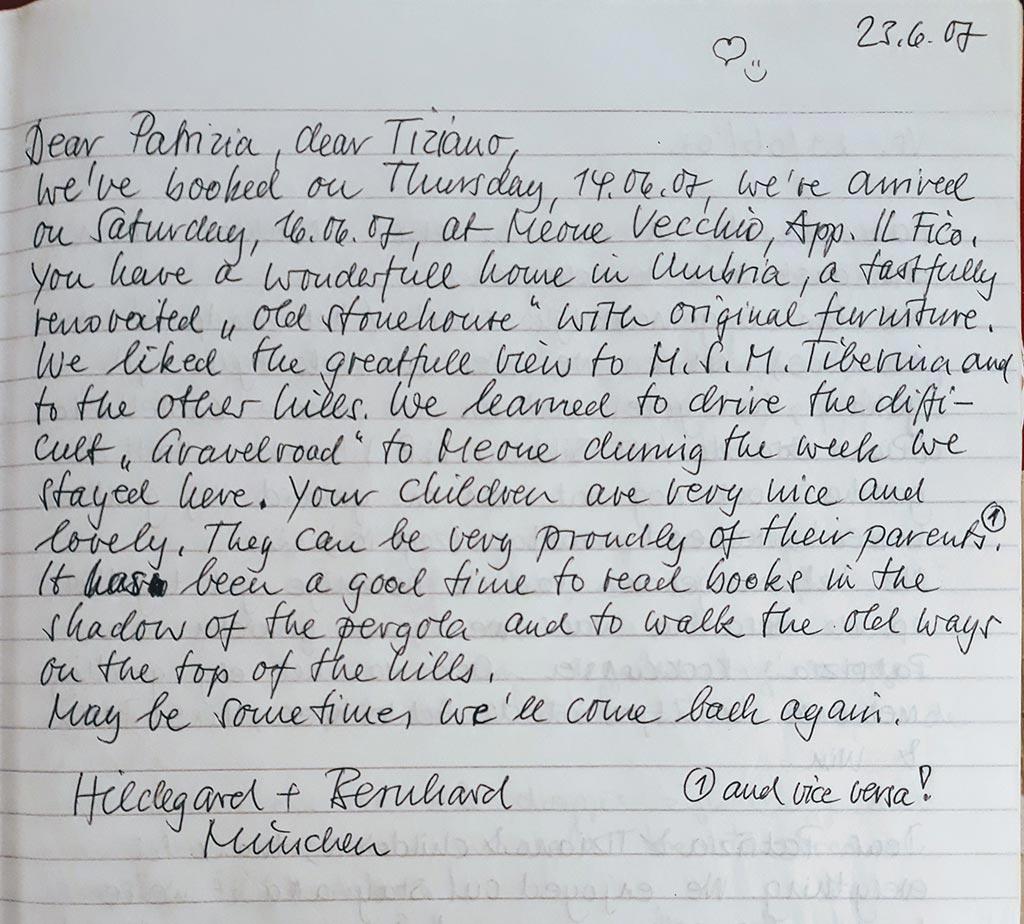 23.6.07
Dear Patrizia, dear Tiziano,
we've booked on Thursday, 14.06.07, we're arrived
on Saturday, 16.06.07, at Meone Vecchio, App. Il Fico.
You have a wonderfull home in Umbria, a tastfully
renovated „old stonehouse“ with original furniture.
We liked the greatfull view to M.S.M. Tiberina and
to the other hills. We learned to drive the diffi-
cult „Gravelroad“ to Meone during the week we
stayed here. Your children are very nice and
lovely. They can be very proudly of their parents.①
It has been a good time to read books in the
shadow of the pergola and to walk the old ways
on the top of the hills.
May be sometimes we'll come back again.
Hildegard + Bernhard
München
① and vice versa!